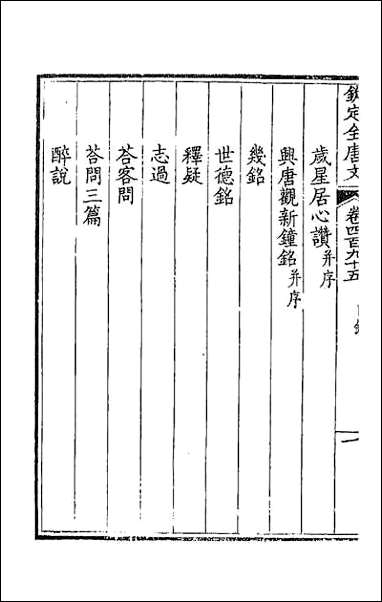 欽定全唐文 卷四百九十五
歲星居心讚并序
興唐觀新鐘銘并序
幾銘
世德銘
釋疑
志過
荅客問
荅問三篇
醉說